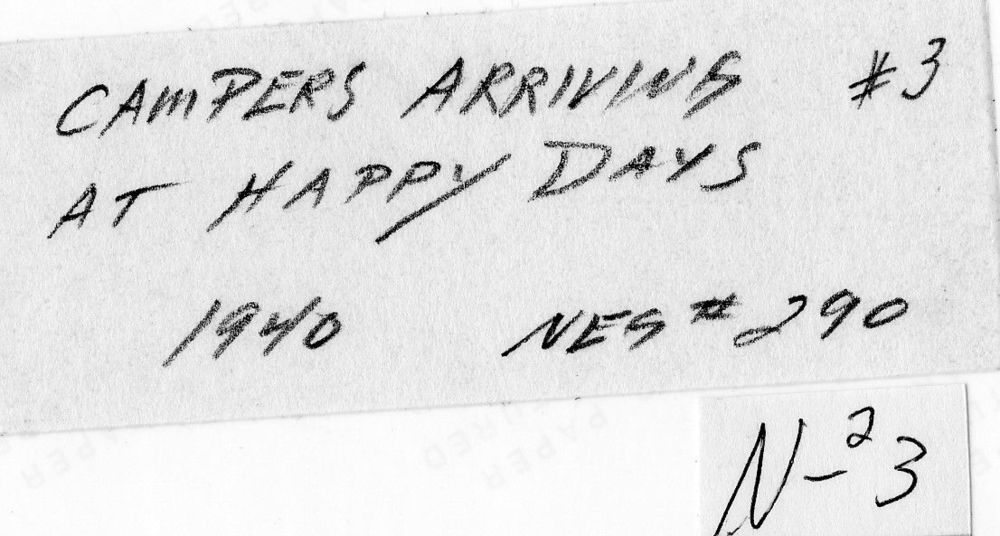 CAMPERS ARRIVING #3
AT HAPPY DAYS
1940 NEG # 290
N-²3